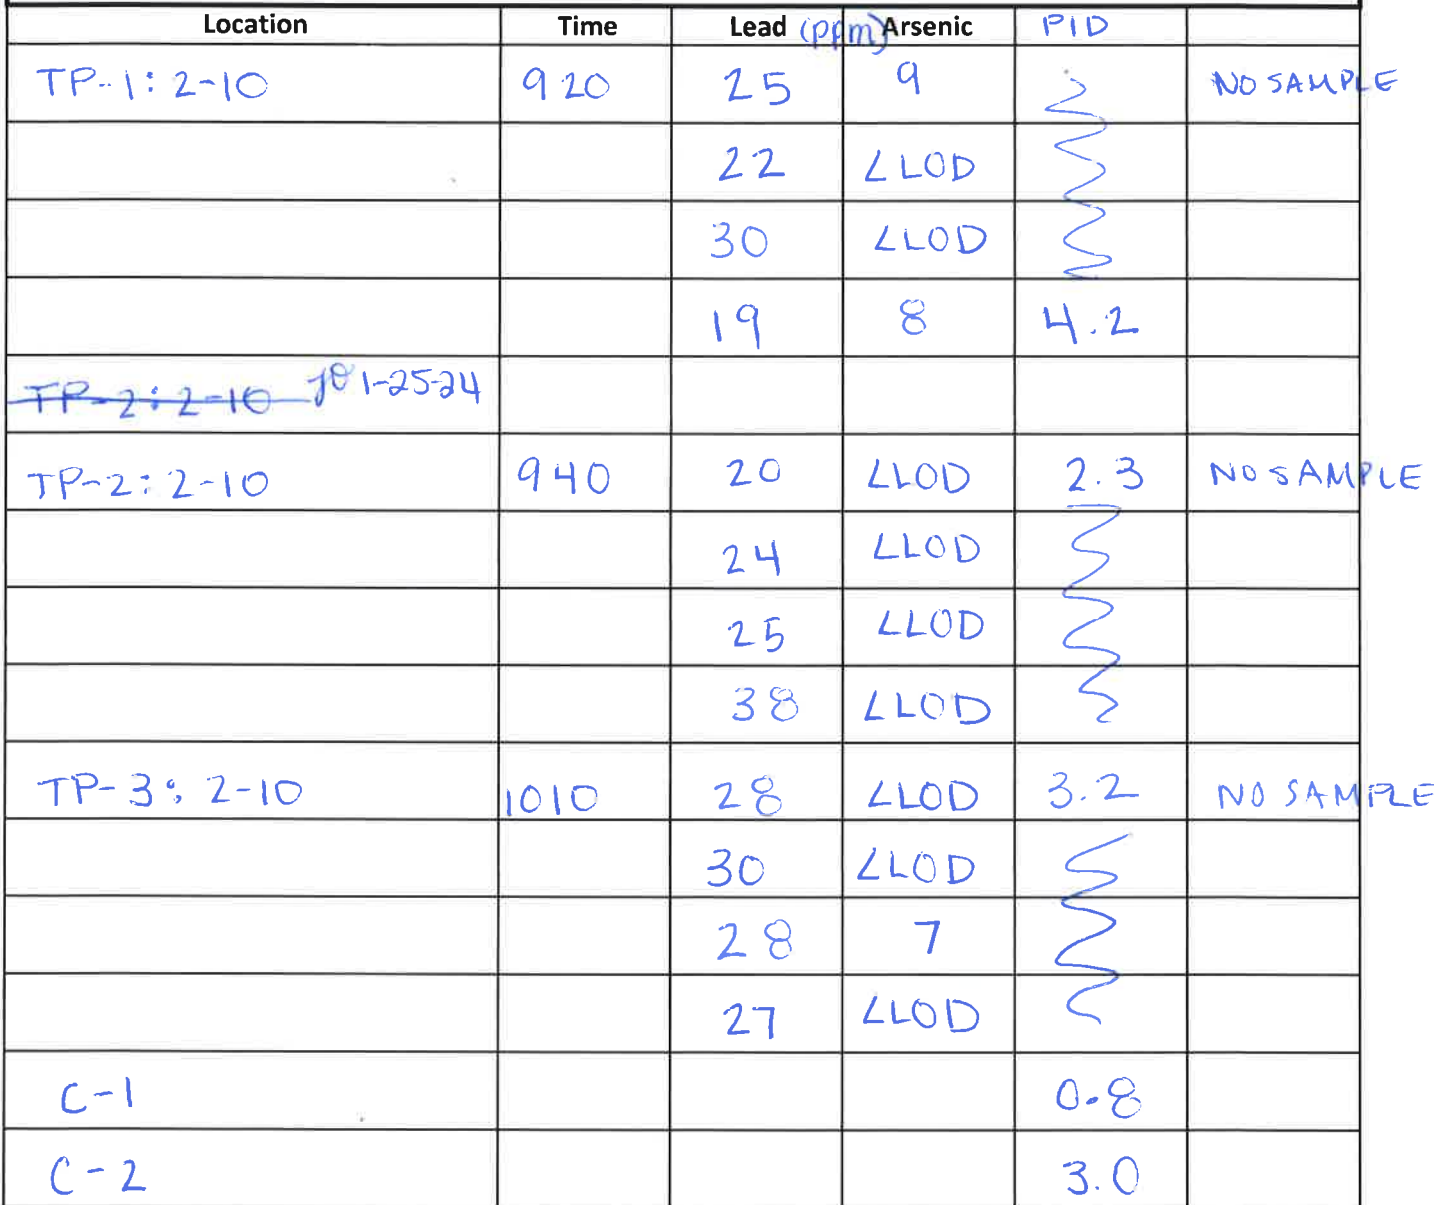 Location Time Lead (ppm) Arsenic PID
TP-1: 2-10 920 25 9 NO SAMPLE
22 <LOD
30 <LOD
19 8 4.2
TP-2: 2-10 1-25-24
TP-2: 2-10 940 20 <LOD 2.3 NO SAMPLE
24 <LOD
25 <LOD
38 <LOD
TP-3: 2-10 1010 28 <LOD 3.2 NO SAMPLE
30 <LOD
28 7
27 <LOD
C-1 0.8
C-2 3.0